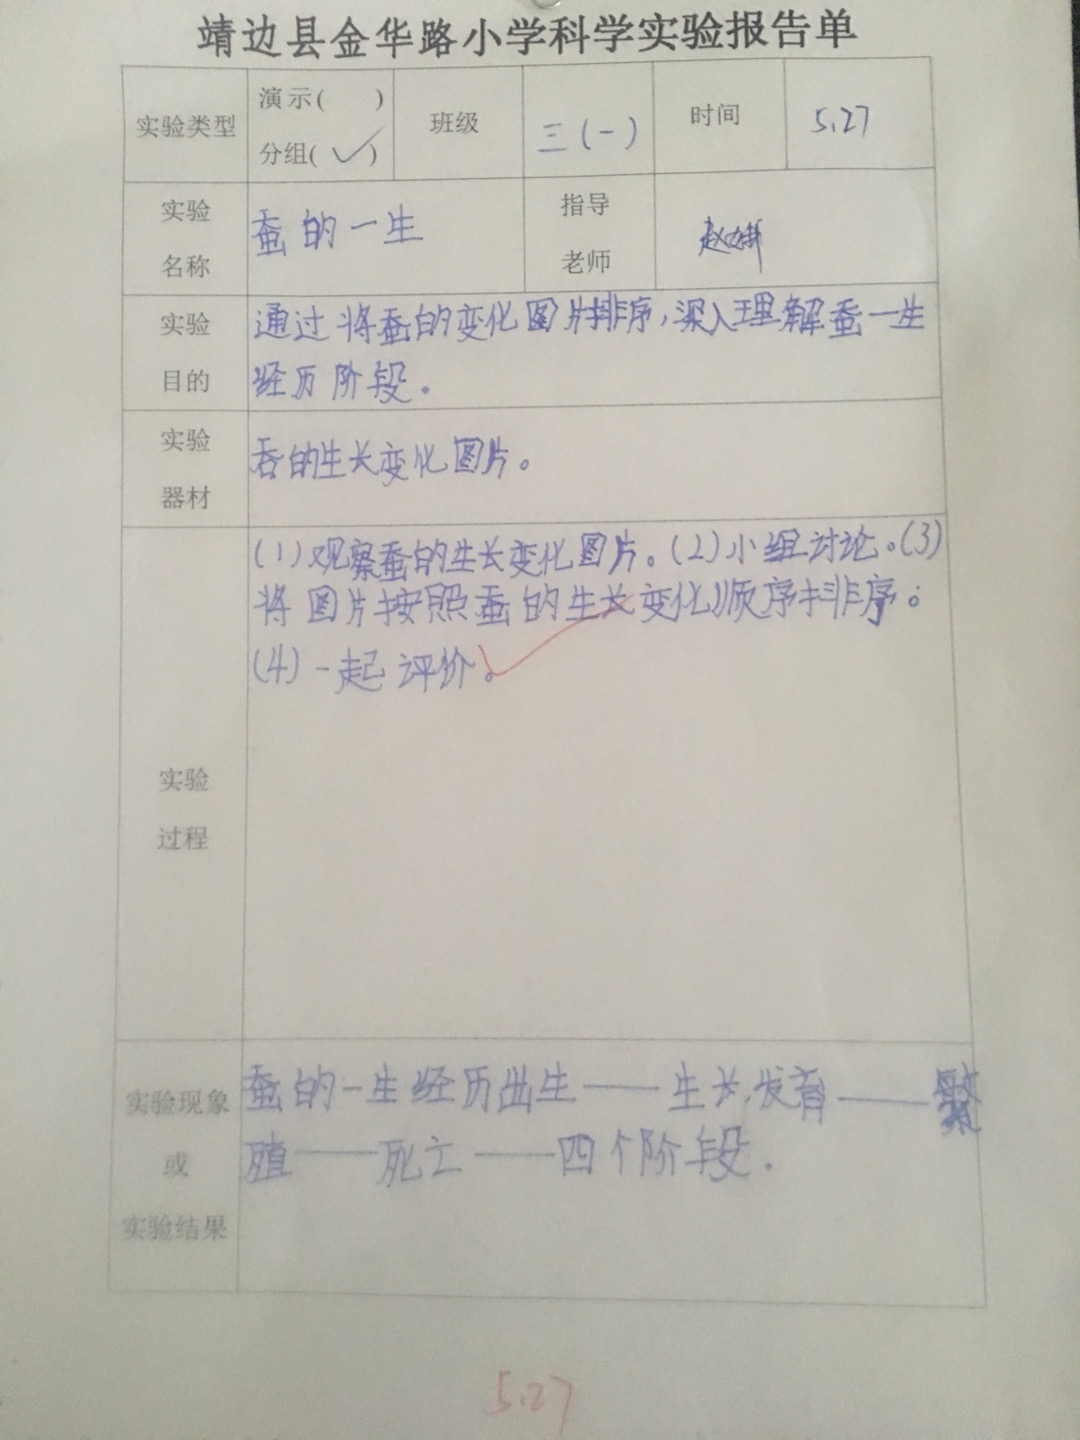 靖边县金华路小学科学实验报告单
实验类型 演示(　　) 班级 三(一) 时间 5.27
分组( ✓ )
实验 蚕的一生 指导
名称 老师
实验 通过将蚕的变化图片排序,深入理解蚕一生
目的 经历阶段。
实验 吞的生长变化图片。
器材
(1)观察蚕的生长变化图片。(2)小组讨论。(3)
将图片按照蚕的生长变化顺序排序。
(4)一起评价。
实验
过程
实验现象 蚕的一生经历出生——生长,发育——繁
或 殖——死亡——四个阶段.
实验结果
5.27